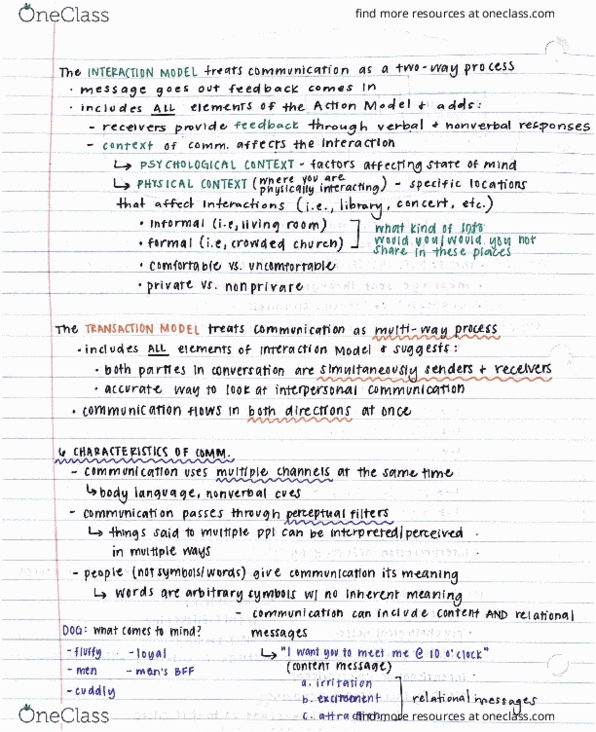 OneClass
find more resources at oneclass.com
The INTERACTION MODEL treats communication as a two-way process
• message goes out feedback comes in
• includes ALL elements of the Action Model & adds:
- receivers provide feedback through verbal & nonverbal responses
- context of comm. affects the interaction
↳ PSYCHOLOGICAL CONTEXT - factors affecting state of mind
↳ PHYSICAL CONTEXT (where you are physically interacting) - specific locations
that affect interactions (i.e., library, concert, etc.)
• informal (i.e, living room)
• formal (i.e, crowded church)
what kind of info
would you/would you not
share in these places
• comfortable vs. uncomfortable
• private vs. nonprivate
The TRANSACTION MODEL treats communication as multi-way process
• includes ALL elements of Interaction Model & suggests:
• both parties in conversation are simultaneously senders & receivers
• accurate way to look at interpersonal communication
• communication flows in both directions at once
6 CHARACTERISTICS OF COMM.
- communication uses multiple channels at the same time
↳ body language, nonverbal cues
- communication passes through perceptual filters
↳ things said to multiple ppl can be interpreted/perceived
in multiple ways
- people (not symbols/words) give communication its meaning
↳ words are arbitrary symbols w/ no inherent meaning
- communication can include content AND relational
messages
DOG: what comes to mind?
- fluffy - loyal
- men - man's BFF
- cuddly
↳ "I want you to meet me @ 10 o'clock"
(content message)
a. irritation
b. excitement
c. attraction
relational messages
OneClass
find more resources at oneclass.com